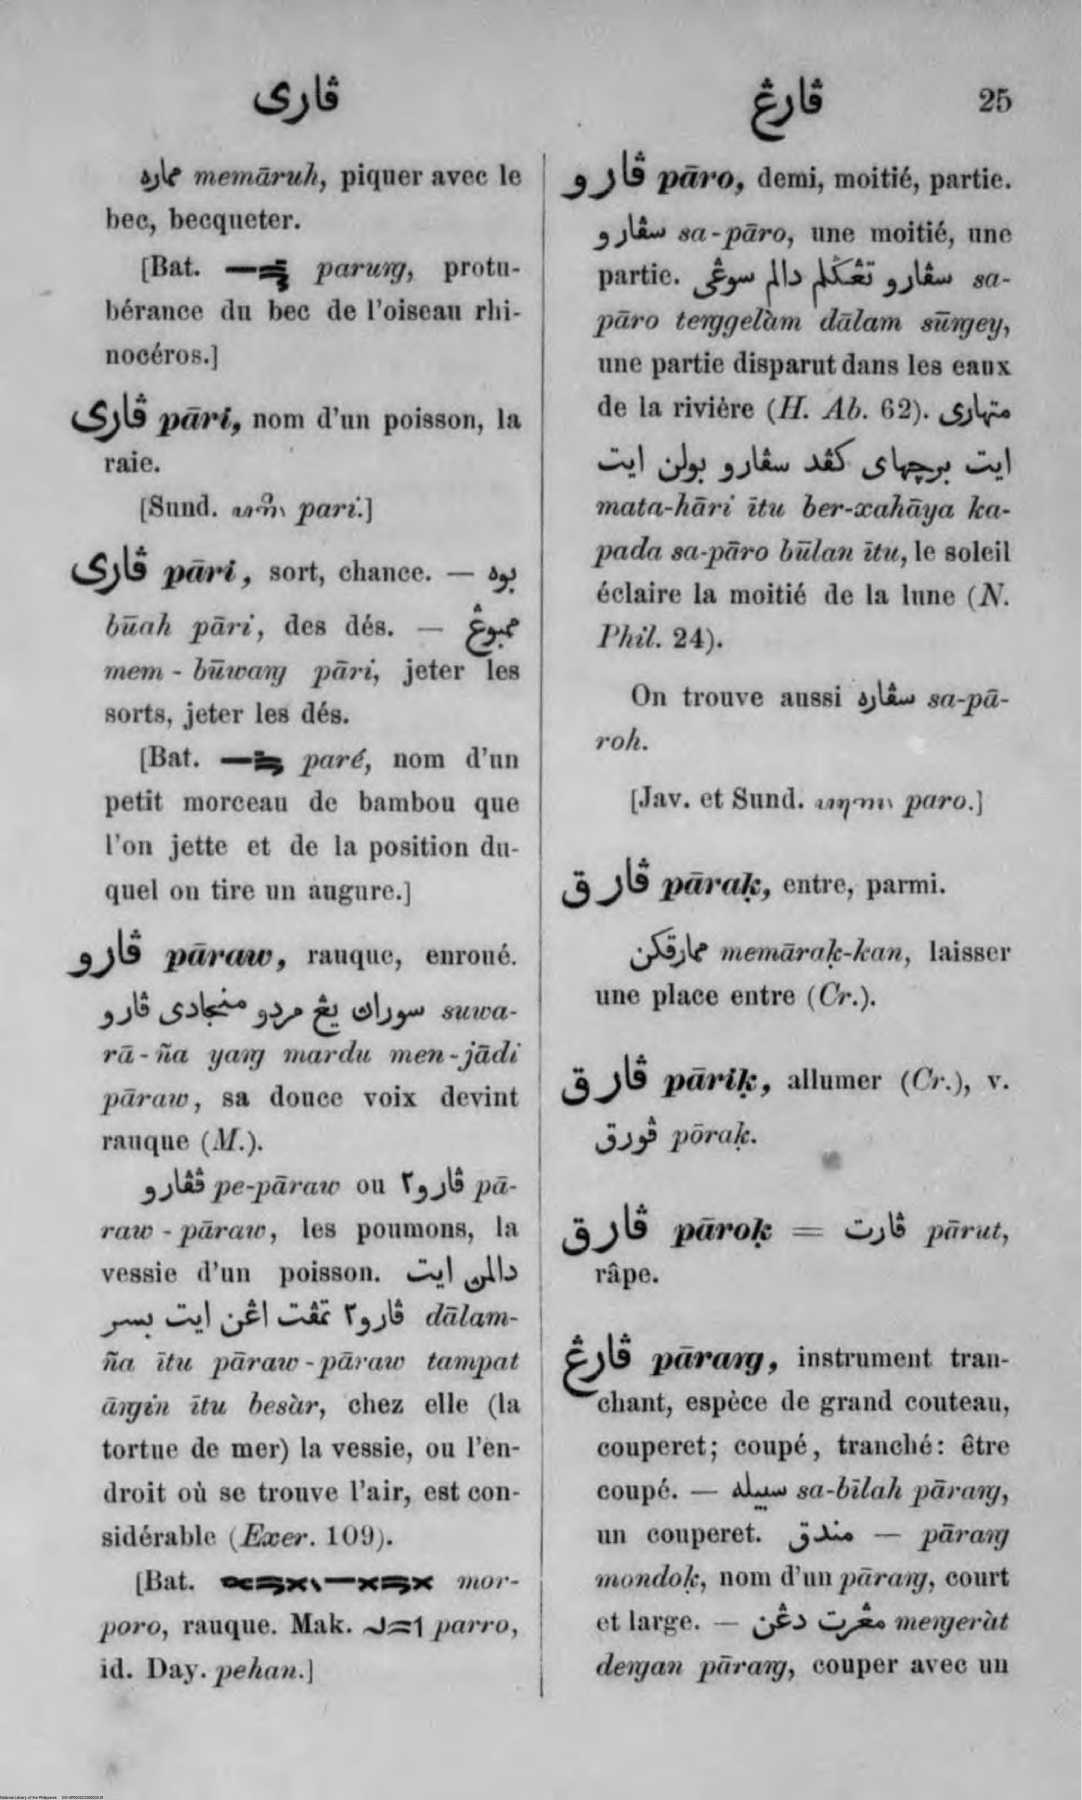 ڤاری
ڤارڠ 25
مماره memāruh, piquer avec le
bec, becqueter.
[Bat. paruṟg, protu-
bérance du bec de l'oiseau rhi-
nocéros.]
ڤاری pāri, nom d'un poisson, la
raie.
[Sund. pari.]
ڤاری pāri, sort, chance. — بوه
būah pāri, des dés. — ممبوڠ
mem-būwaṟg pāri, jeter les
sorts, jeter les dés.
[Bat. paré, nom d'un
petit morceau de bambou que
l'on jette et de la position du-
quel on tire un augure.]
ڤارو pāraw, rauque, enroué.
سوراڽ يڠ مردو منجادی ڤارو suwa-
rā-ña yaṟg mardu men-jādi
pāraw, sa douce voix devint
rauque (M.).
ڤڤارو pe-pāraw ou ڤارو٢ pā-
raw-pāraw, les poumons, la
vessie d'un poisson. دالمڽ ايت
ڤارو٢ تمڤت اڠن ايت بسر dālam-
ña ītu pāraw-pāraw tampat
āṟgin ītu besàr, chez elle (la
tortue de mer) la vessie, ou l'en-
droit où se trouve l'air, est con-
sidérable (Exer. 109).
[Bat. mor-
poro, rauque. Mak. parro,
id. Day. pehan.]
ڤارو pāro, demi, moitié, partie.
سڤارو sa-pāro, une moitié, une
partie. سڤارو تڠݢلم دالم سوڠی sa-
pāro teṟggelàm dālam sūṟgey,
une partie disparut dans les eaux
de la rivière (H. Ab. 62). متهاری
ايت برچهای كڤد سڤارو بولن ايت
mata-hāri ītu ber-xahāya ka-
pada sa-pāro būlan ītu, le soleil
éclaire la moitié de la lune (N.
Phil. 24).
On trouve aussi سڤاره sa-pā-
roh.
[Jav. et Sund. paro.]
ڤارق pāraḳ, entre, parmi.
ممارقكن memāraḳ-kan, laisser
une place entre (Cr.).
ڤارق pāriḳ, allumer (Cr.), v.
ڤورق pōraḳ.
ڤارق pāroḳ = ڤارت pārut,
râpe.
ڤارڠ pāraṟg, instrument tran-
chant, espèce de grand couteau,
couperet; coupé, tranché: être
coupé. — سبيله sa-bīlah pāraṟg,
un couperet. مندق — pāraṟg
mondoḳ, nom d'un pāraṟg, court
et large. — مڠرت دڠن meṟgeràt
deṟgan pāraṟg, couper avec un